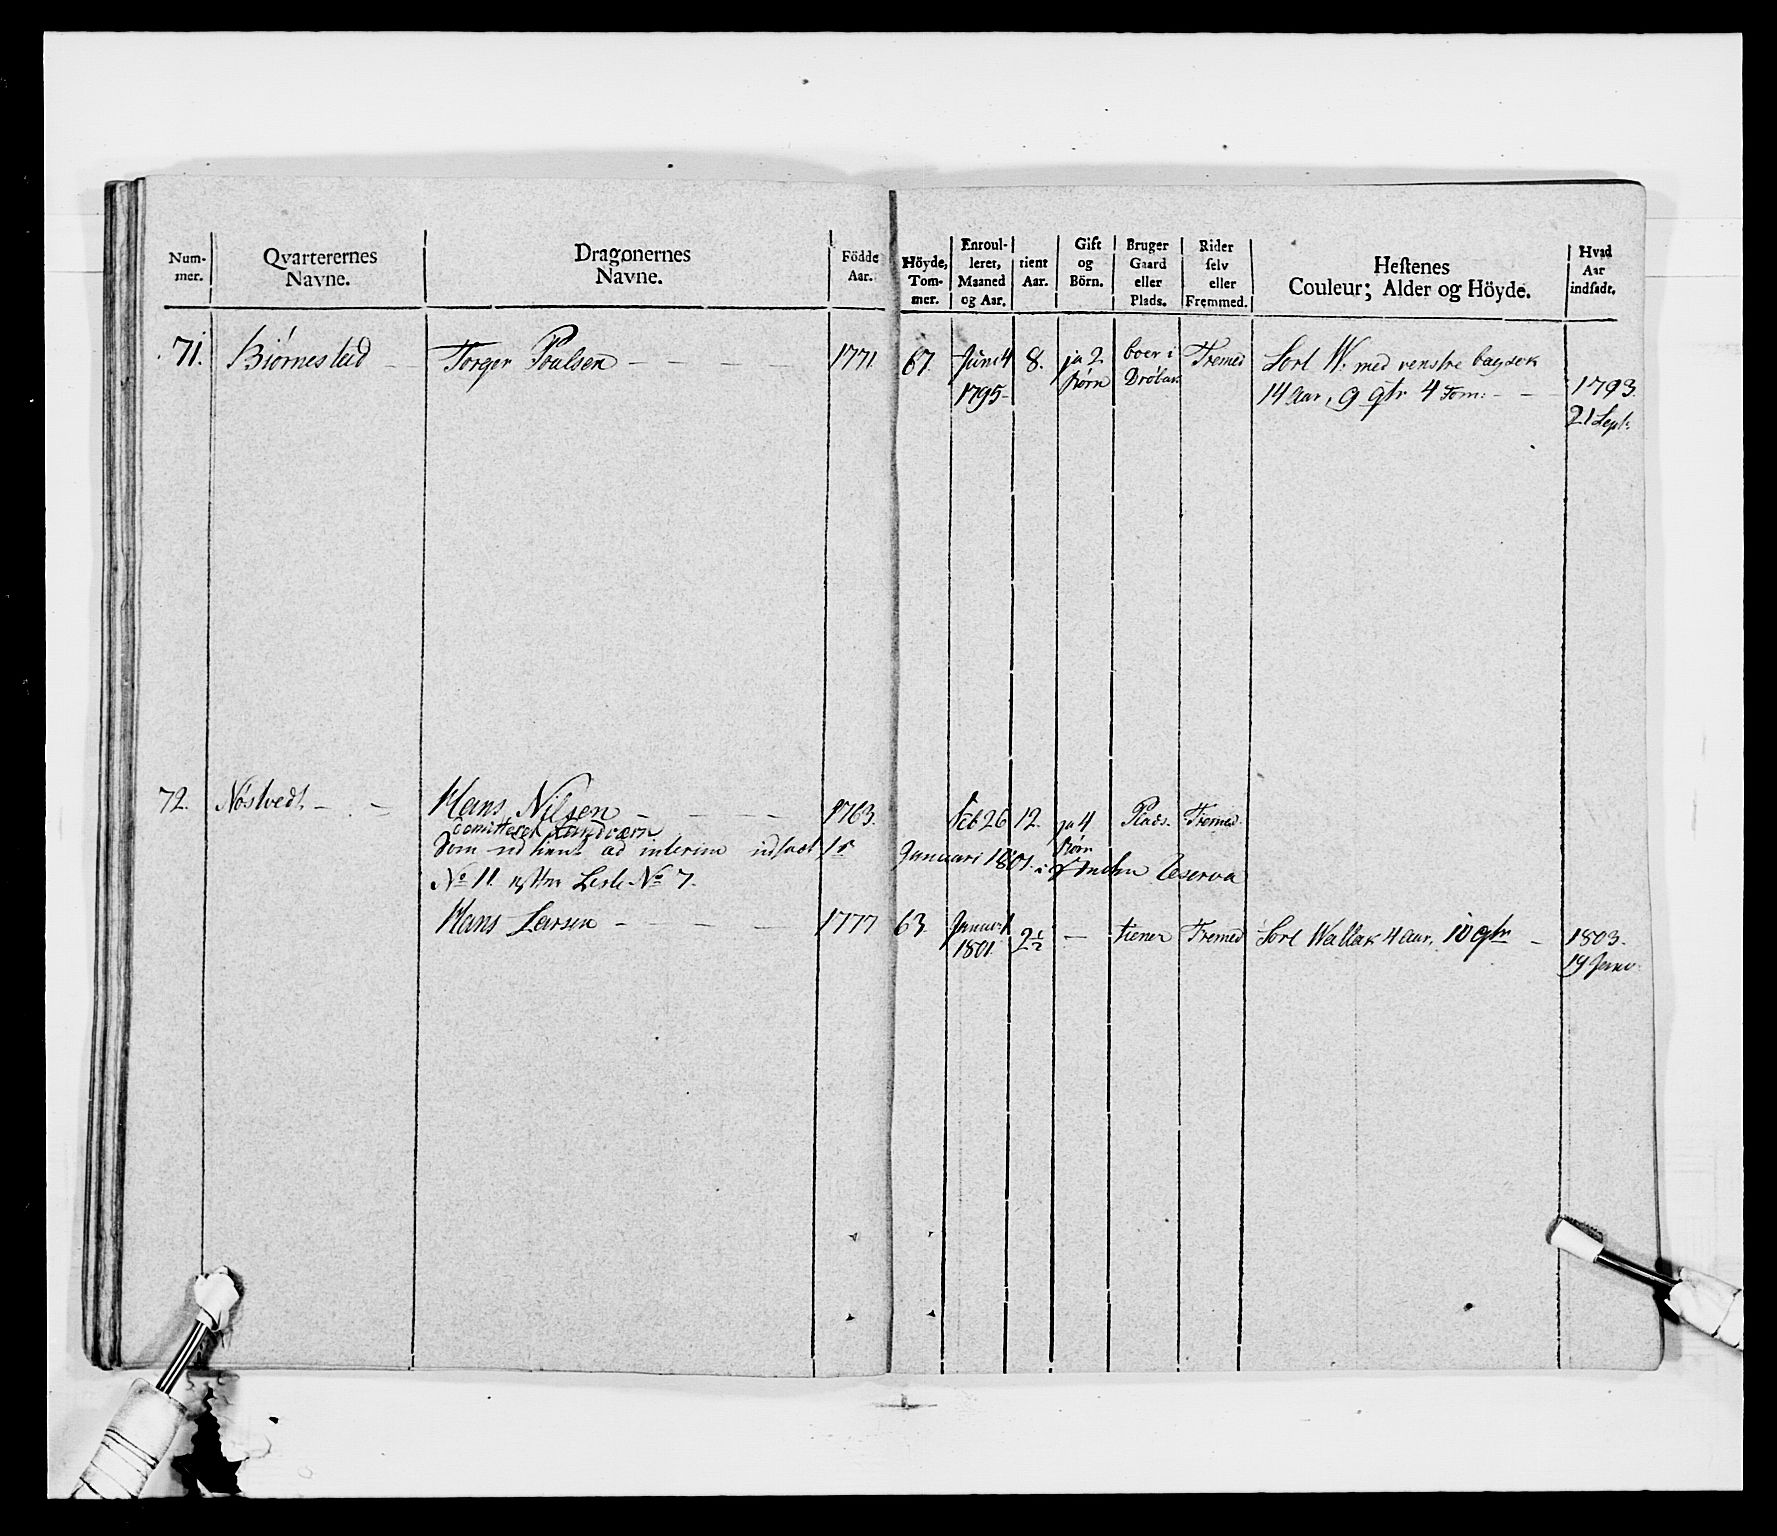 Num-
mer.
Qvarterernes
Navne.
Dragonernes
Navne.
Födde
Aar.
Höyde,
Tom-
mer.
Enroul-
leret,
Maaned
og Aar.
tient
Aar.
Gift
og
Börn.
Bruger
Gaard
eller
Plads.
Rider
selv
eller
Fremmed.
Hestenes
Couleur; Alder og Höyde.
Hvad
Aar
indsadt.
71. Biørnestad - - Torger Poulsen - - - - 1771. 67. Juni 4 8. ja 2 boer i Fremed Sort W: med venstre bagsok
1795- Børn Drøbak 14 Aar, 9 qtr 4 Tom: - - 1793.
21 Sept:
72. Nøstvedt - - Hans Nilsen - - - - 1763. Feb 26 12. ja 4 Plads. Fremed.
Børn
Landværn
Som udtient ad interim udsadt 1ste Januari 1801. i Anden Reserva
No 11. Liste No 7.
Hans Larsen - - - - 1777 63 Januar 1 2½ - tiener Fremed Sort Wallak 4 Aar, 10 qtr - 1803.
1801. 19 Janu: